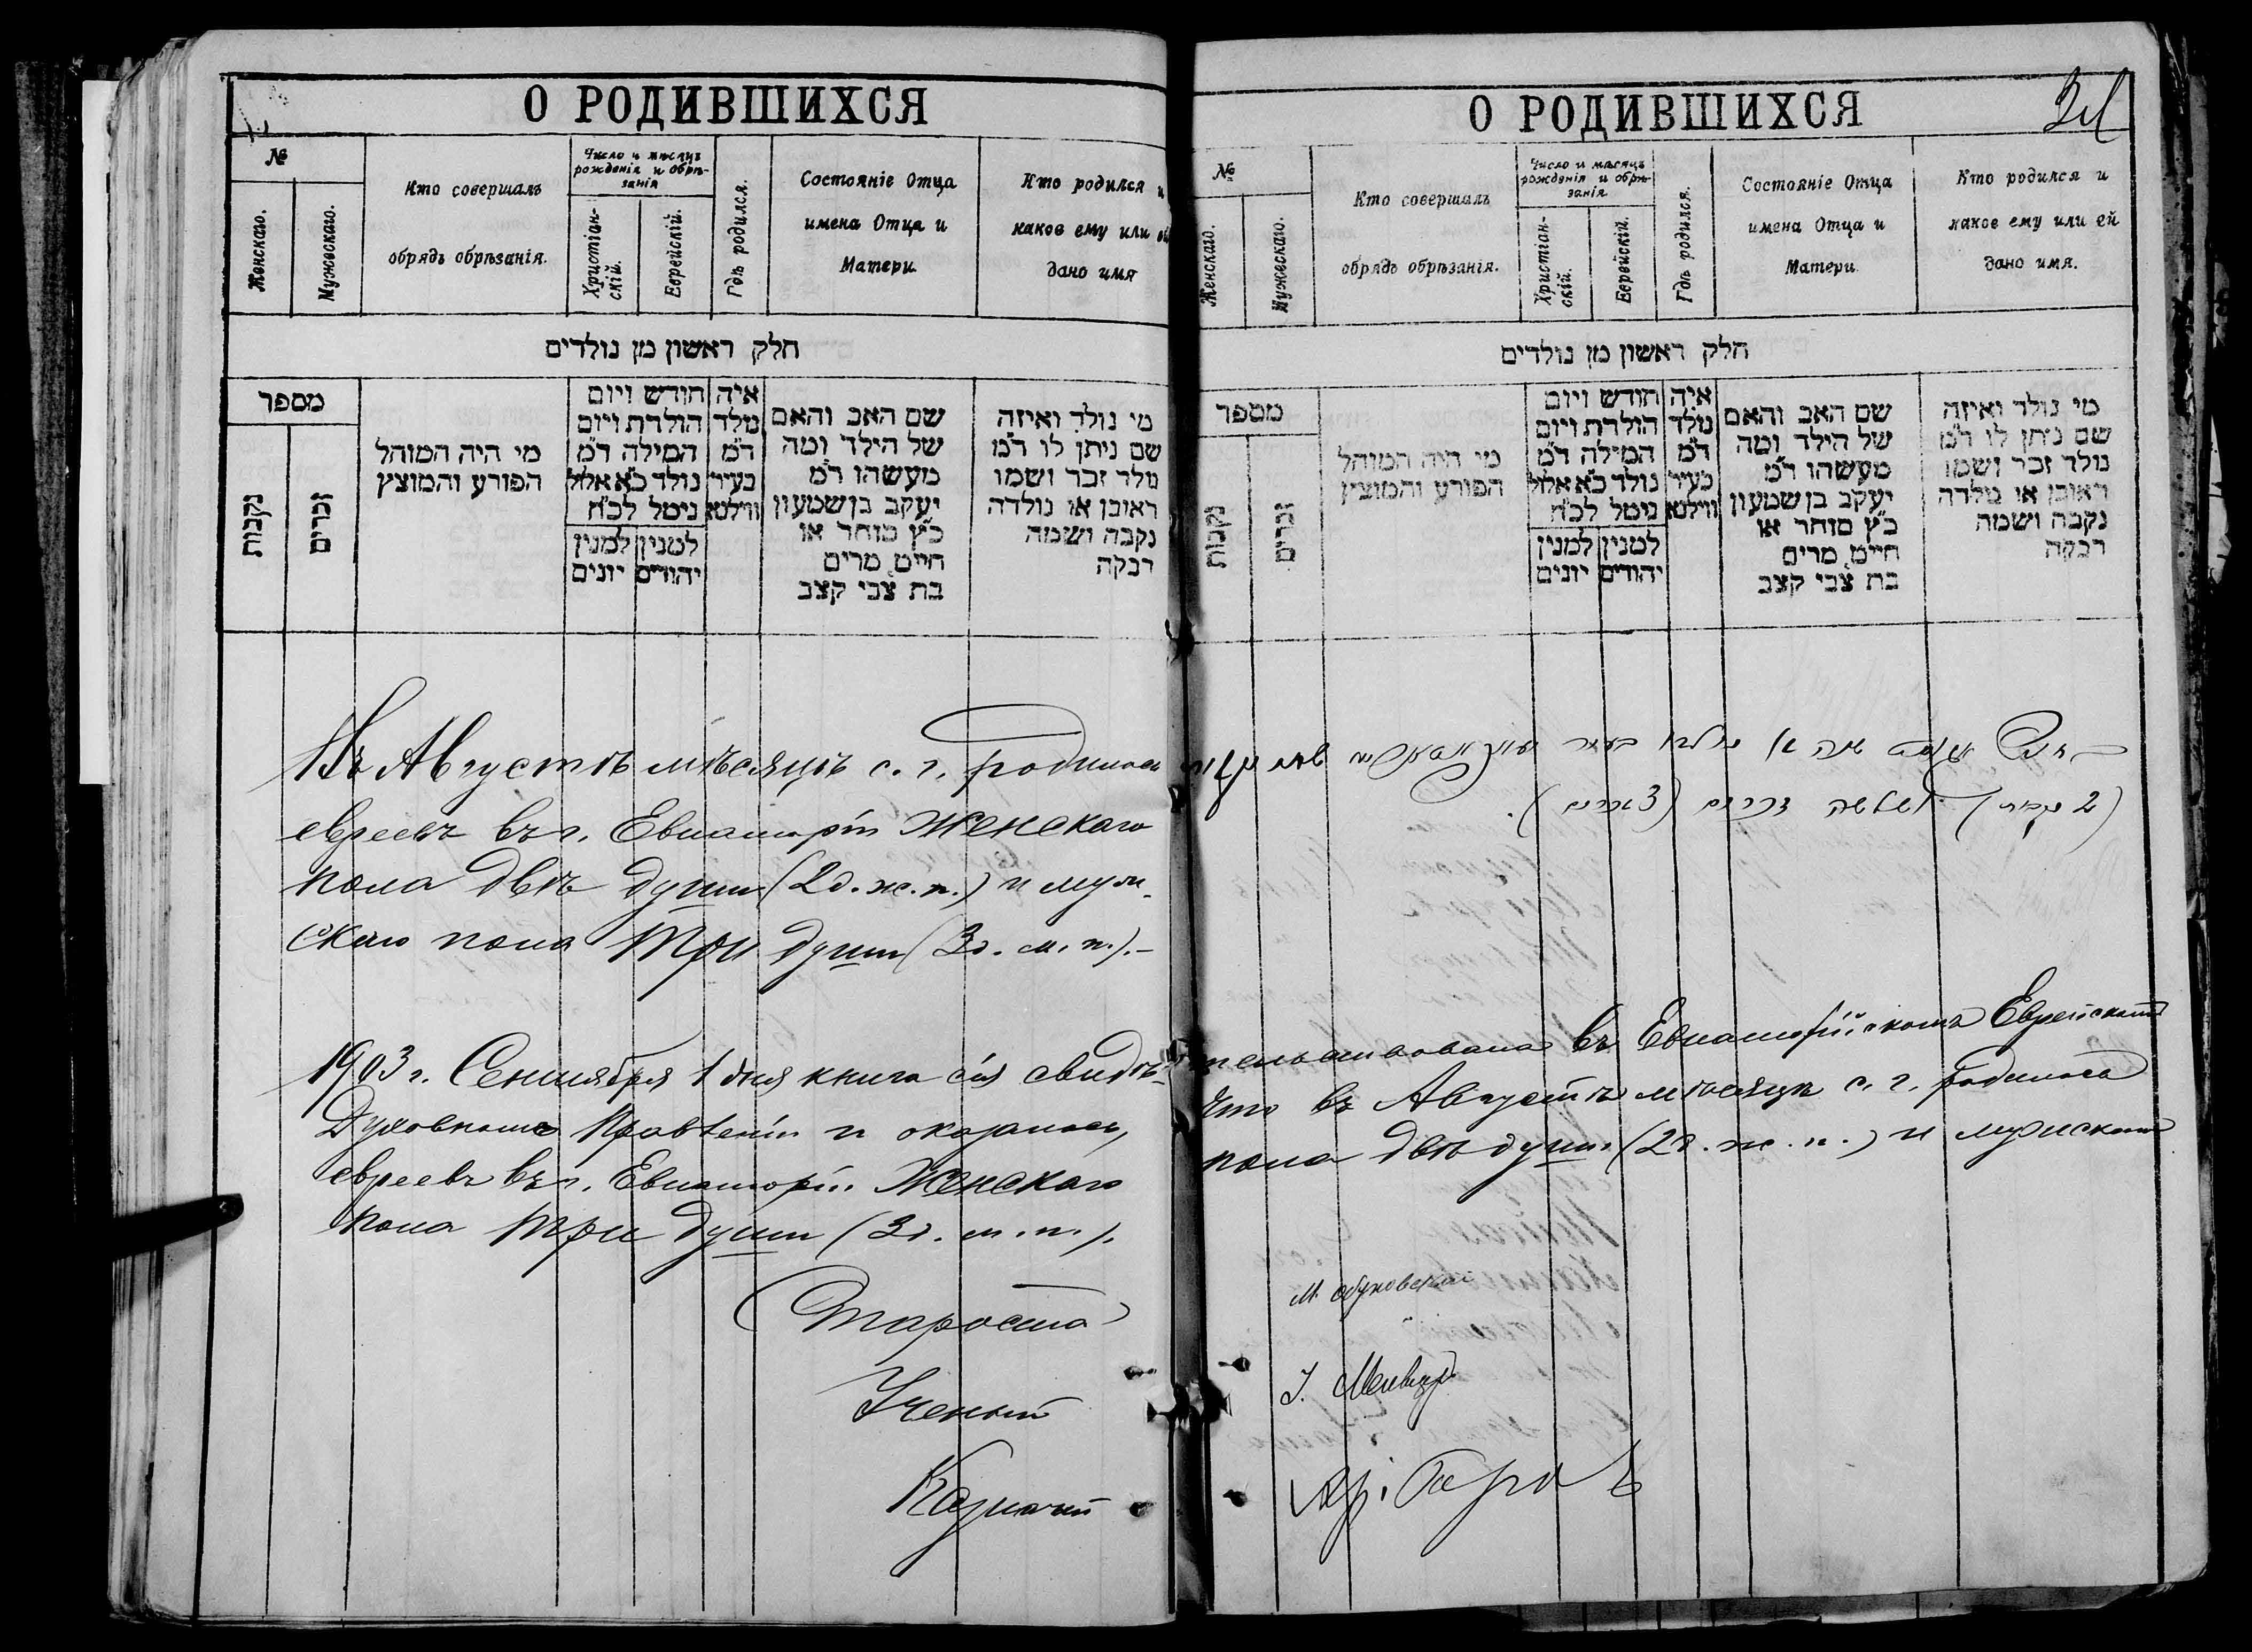 О РОДИВШИХСЯ
№
Женскаго.
Мужескаго.
Кто совершалъ
обрядъ обрѣзанія.
Число и мѣсяцъ
рожденія и обрѣ-
занія
Христіан-
скій.
Еврейскій.
Гдѣ родился.
Состояніе Отца
имена Отца и
Матери
Кто родился и
какое ему или ей
дано имя
חלק ראשון מן נולדים
מספר
נקבות
זכרים
מי היה המוהל
הפורע והמוצץ
חודש ויום
הולדת ויום
המילה ד״מ
נולד כ״א אלול
נימל לכ״ח
למנין יהודים
למנין יונים
איה
נולד
ד״מ
בעיר
ווילנא
שם האב והאם
של הילד ומה
מעשהו ד״מ
יעקב בן שמעון
כ״ץ סוחר או
חייט מרים
בת צבי קצב
מי נולד ואיזה
שם ניתן לו ד״מ
נולד זכר ושמו
ראובן או נולדה
נקבה ושמה
רבקה
Въ Августѣ мѣсяцѣ с. г. родилось
евреевъ въ г. Евпаторіи Женскаго
пола двѣ души (2 д. ж. п.) и муж-
скаго пола Три души (3 д. м. п.).–
1903 г. Сентября 1 дня книга сія свидѣ-
Духовномъ Правленіи и оказалось,
евреевъ въ г. Евпаторіи Женскаго
пола три души (3 д. м. п.).
Староста
Ученый
Казначей
О РОДИВШИХСЯ
№
Женскаго.
Мужескаго.
Кто совершалъ
обрядъ обрѣзанія.
Число и мѣсяцъ
рожденія и обрѣ-
занія
Христіан-
скій.
Еврейскій.
Гдѣ родился.
Состояніе Отца
имена Отца и
Матери
Кто родился и
какое ему или ей
дано имя.
חלק ראשון מן נולדים
מספר
נקבות
זכרים
מי היה המוהל
הפורע והמוצץ
חודש ויום
הולדת ויום
המילה ד״מ
נולד כ״א אלול
נימל לכ״ח
למנין יהודים
למנין יונים
איה
נולד
ד״מ
בעיר
ווילנא
שם האב והאם
של הילד ומה
מעשהו ד״מ
יעקב בן שמעון
כ״ץ סוחר או
חייט מרים
בת צבי קצב
מי נולד ואיזה
שם ניתן לו ד״מ
נולד זכר ושמו
ראובן או נולדה
נקבה ושמה
רבקה
נולדו בעיר
(2 נקבות) ושלשה זכרים (3 זכרים).
тельствована въ Евпаторійскомъ Еврейскомъ
что въ Августѣ мѣсяцѣ с. г. родилось
пола двѣ души (2 д. ж. п.) и мужскаго
М.